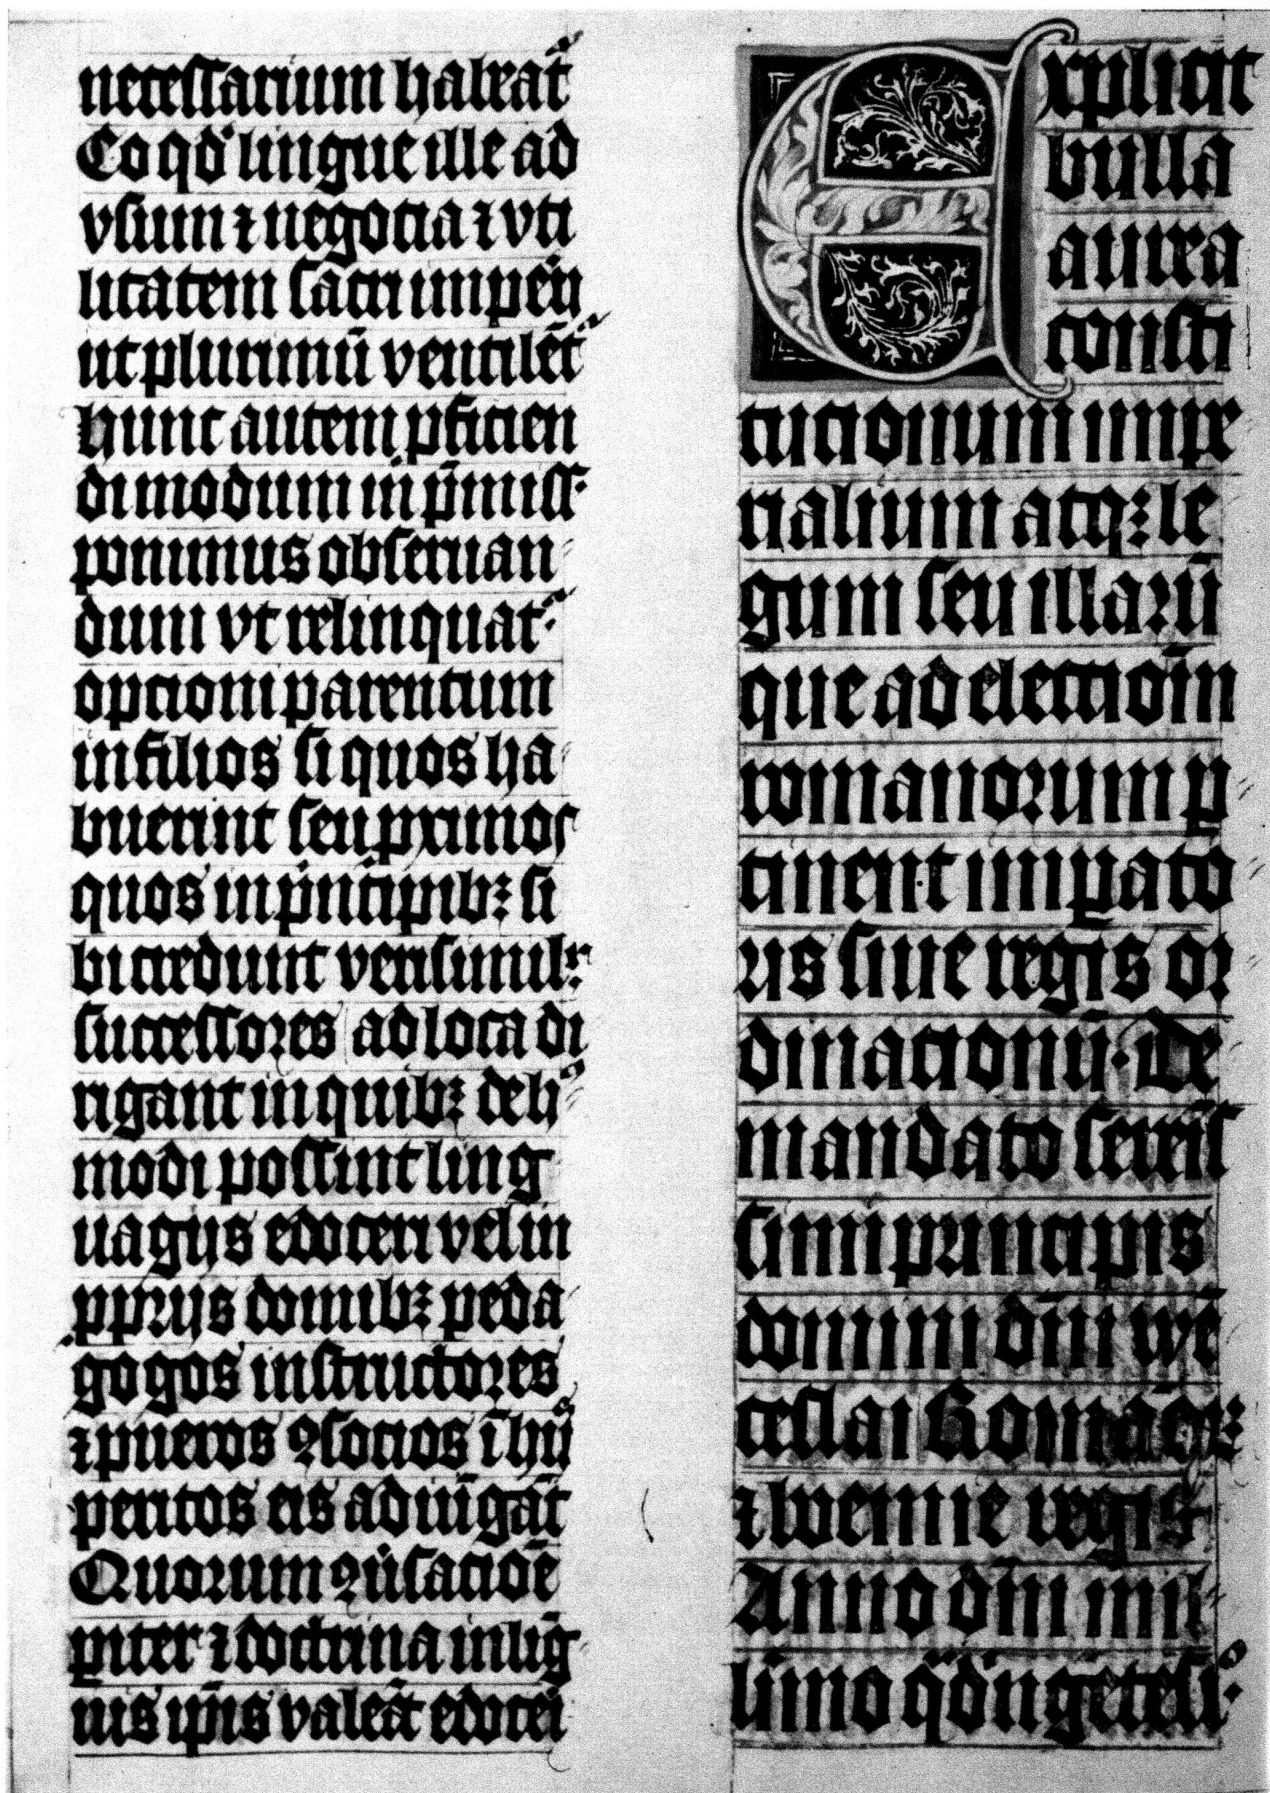 necessarium habeat̄
Eo qd̕ lingue ille ad
vsium ⁊ negocia ⁊ vti
litatem sacri imperij
ut plurimū ventilēt᷑
hunc autem ꝓficien
di modum in p̄miss᷒
ponimus obseruan
dum vt relinquat᷑
opcioni parentum
in filios si quos ha
buerint seu ꝓximos
quos in p̓ncipibꝫ si
bi credunt verisimilr᷑
successores ad loca di
rigant in quibꝫ de hꝰ
modi possint ling
uagijs edoceri vel in
ꝓprijs domibꝫ peda
gogos instructores
⁊ pueros ꝯsocios ī hijs
peritos eis adiūgāt
Quorum ꝯūsacioē
ꝑiter ⁊ doctrina in līg
uis ip̄is valeāt edoceri
Explicit
bulla
aurea
consti
tucionum impe
rialium atqꝫ le
gum seu illarū
que ad electioīm
romanorum ꝑ
tinent impꝑato
ris siue regis or
dinacionū. De
mandato sereīs
simi principis
domini dn̄i wē
ceslai Romāoꝝ
⁊ boemie regis
Anno dn̄i mil
limo q̈dringētesiꝰ